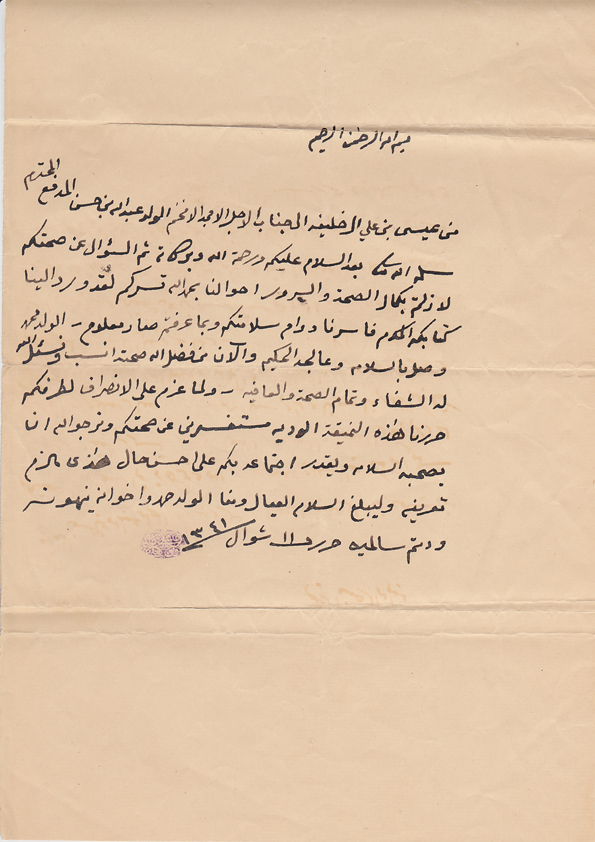 بسم الله الرحمن الرحيم
المحترم
من عيسى بن علي الخليفه الى جناب الاجل الامجد الافخم الولد عبدالله بن حسن المدفع
سلمه الله تعالى بعد السلام عليكم ورحمة الله وبركاته ثم السؤال عن صحتكم
لا زلتم بكمال الصحة والسرور احوالنا بحمدالله تسركم لقد ورد الينا
كتابكم المكرم فاسرنا دوام سلامتكم وبما عرفتم صار معلوم - الولد محمد
وصل بالسلامه وعالجه الحكيم والآن من فضل الله صحته انسب ونسئل الله
له الشفاء وتمام الصحة والعافيه - ولما عزم على الانصراف لطرفكم
حررنا هذه النميقة الوديه مستفسرين عن صحتكم ونرجوا الله انه
بصحبه السلامه ويقدر اجتماعه بكم على احسن حال هذى مالزم
تعريفه وليبلغ السلام العيال ومنا الولد حمد واخوانه ينهونه
ودمتم سالمين حرر في ١١ شوال ١٣٤١